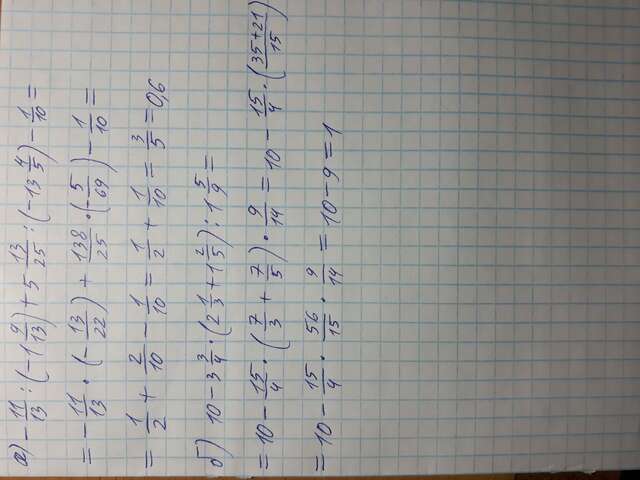 а) -11/13 : (-1 9/13) + 5 13/25 : (-13 4/5) - 1/10 =
= -11/13 · (-13/22) + 138/25 · (-5/69) - 1/10 =
= 1/2 + 2/10 - 1/10 = 1/2 + 1/10 = 3/5 = 0,6
б) 10 - 3 3/4 · (2 1/3 + 1 2/5) : 1 5/9 =
= 10 - 15/4 · (7/3 + 7/5) · 9/14 = 10 - 15/4 · (35+21/15)
= 10 - 15/4 · 56/15 · 9/14 = 10 - 9 = 1